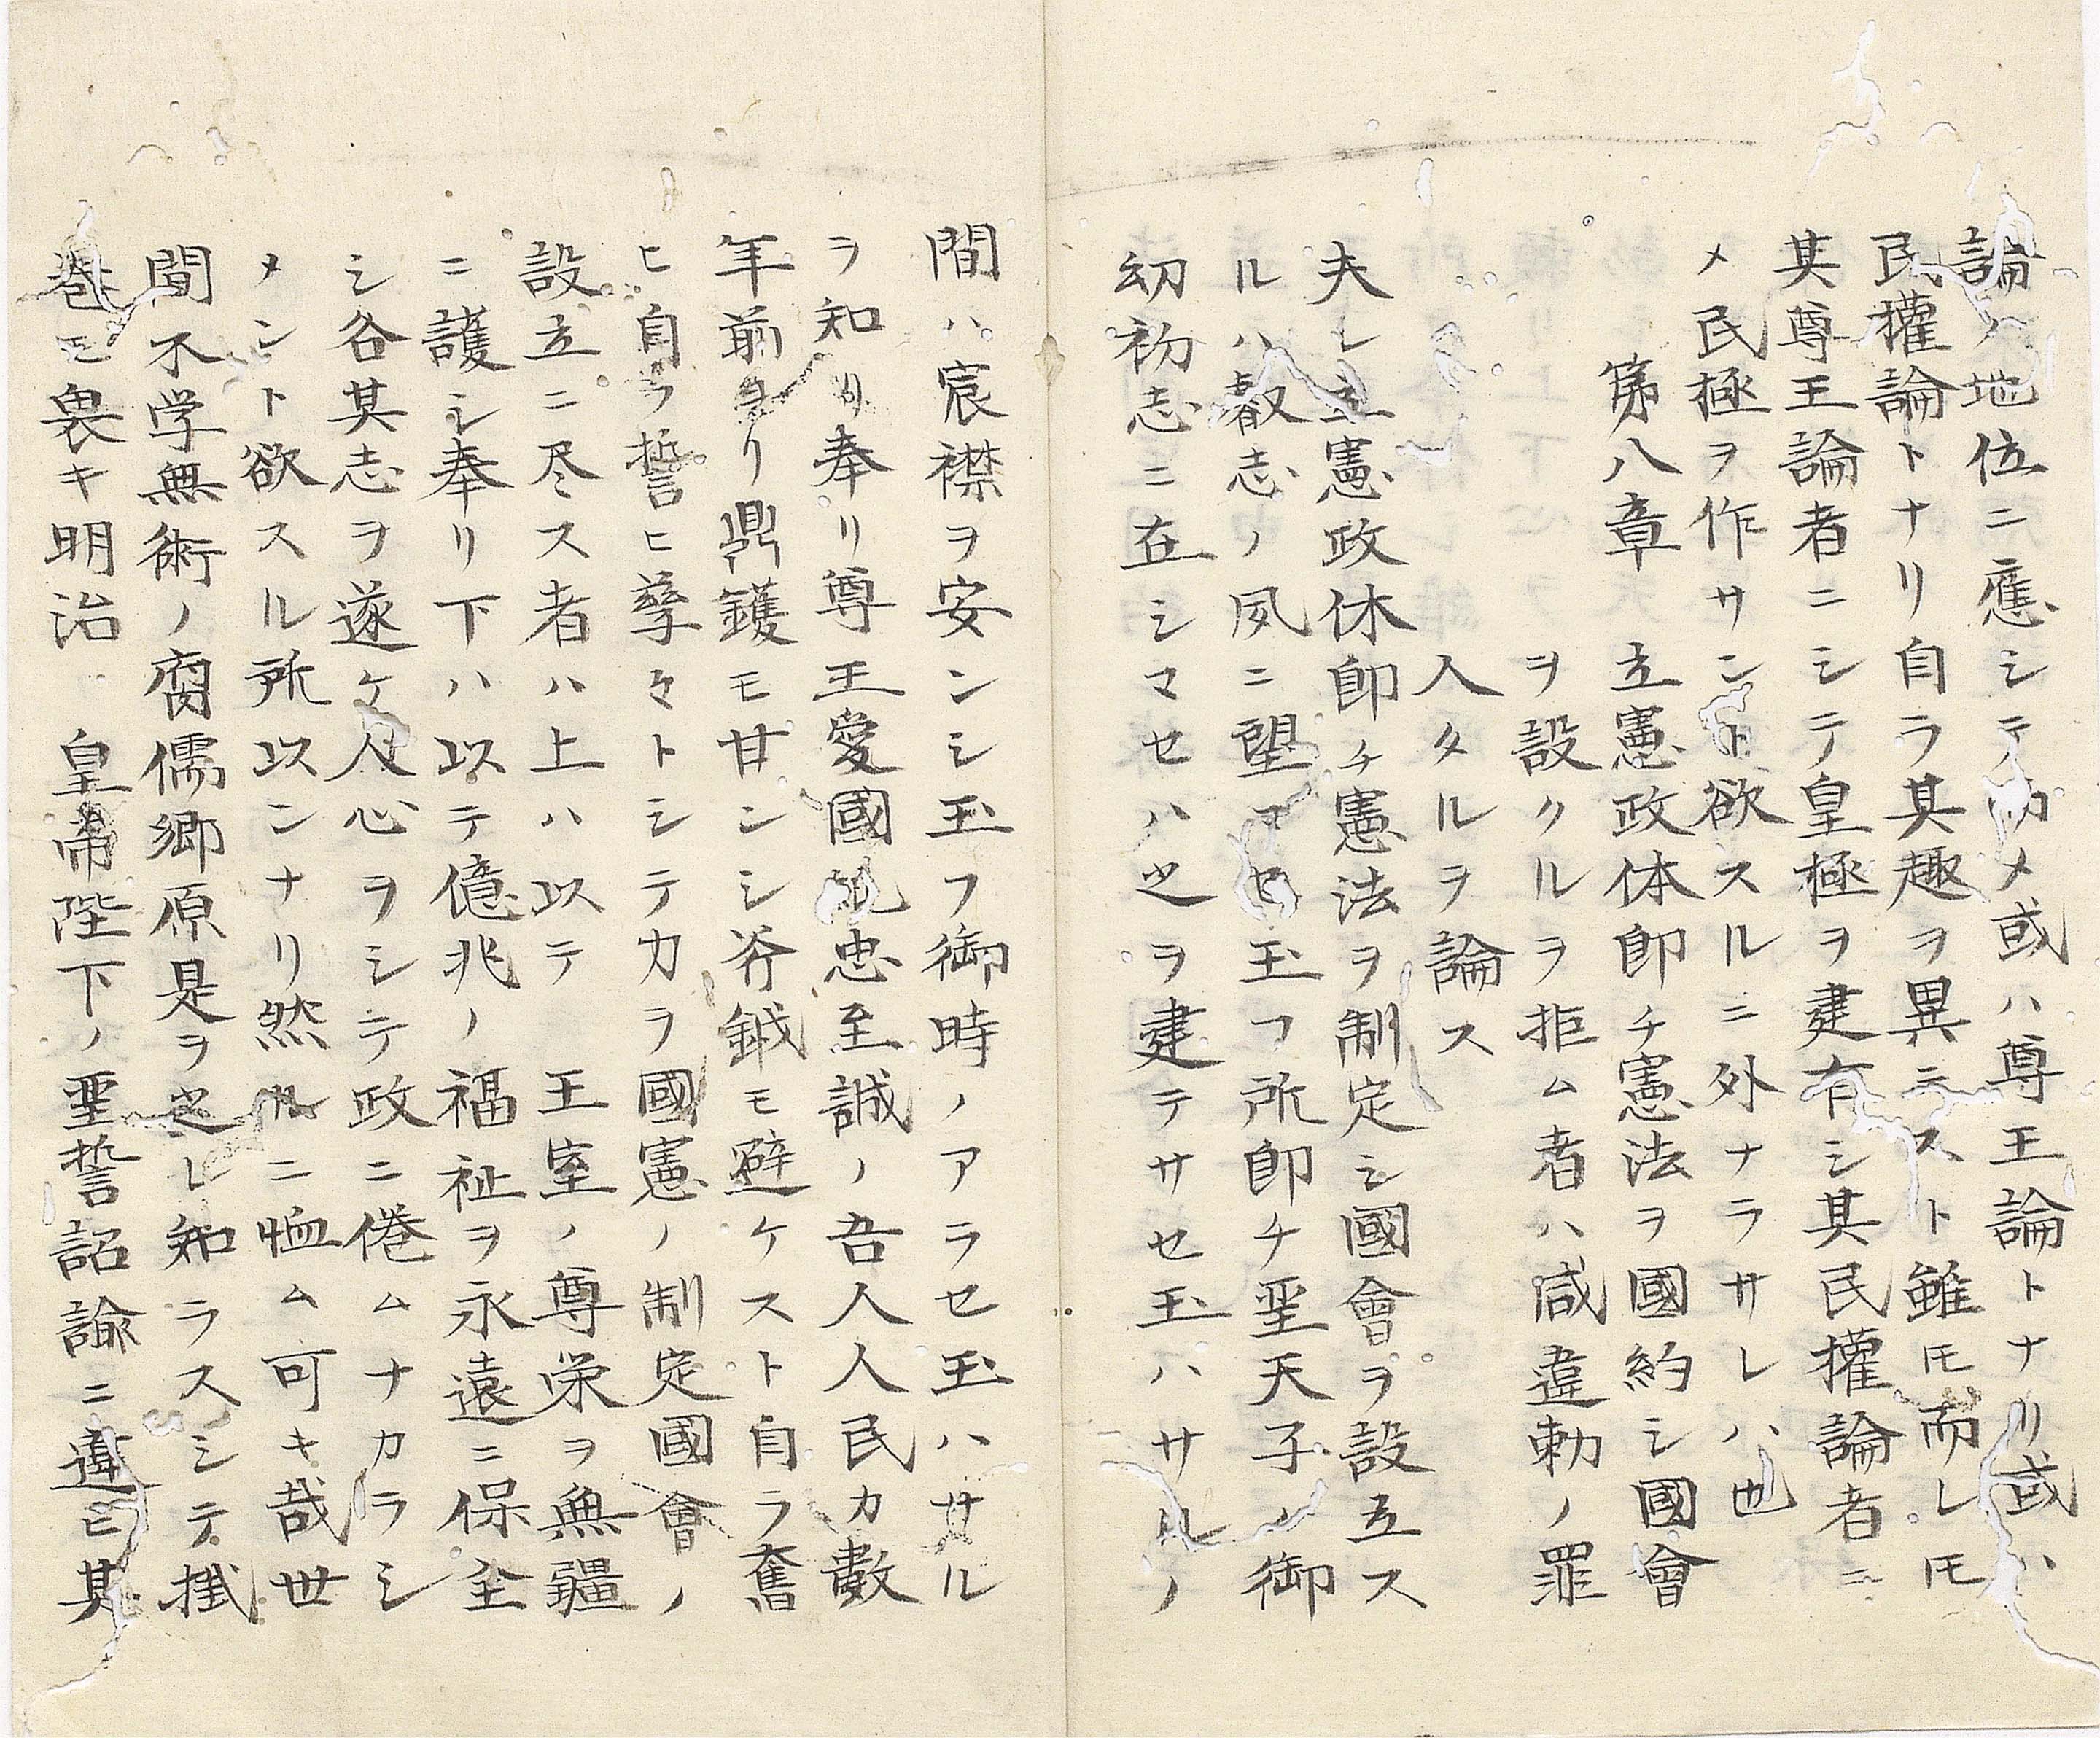 論ノ地位ニ應シテ為メ或ハ尊王論トナリ或ハ
民權論トナリ自ラ其趣ヲ異ニスト雖𪜈而レ𪜈
其尊王論者ニシテ皇極ヲ建有シ其民權論者ニ
メ民極ヲ作サント欲スルニ外ナラサレハ也
第八章 立憲政体即チ憲法ヲ國約シ國會
ヲ設クルヲ拒ム者ハ咸違勅ノ罪
人タルヲ論ス
夫レ立憲政休即チ憲法ヲ制定シ國會ヲ設立ス
ルハ叡志ノ夙ニ望マセ玉フ所即チ聖天子ノ御
幼初志ニ在シマセハ之ヲ建テサセ玉ハサルノ
間ハ宸襟ヲ安ンシ玉フ御時ノアラセ玉ハサル
ヲ知リ奉リ尊王愛國純忠至誠ノ吾人人民カ數
年前ヨリ鼎鑊モ甘ンシ斧鉞モ避ケスト自ラ奮
ヒ自ラ誓ヒ孳々トシテカヲ國憲ノ制定國會ノ
設立ニ尽ス者ハ上ハ以テ 王室ノ尊栄ヲ無疆
ニ護シ奉リ下ハ以テ億兆ノ福祉ヲ永遠ニ保全
シ各其志ヲ遂ケ人心ヲシテ政ニ倦ムナカラシ
メント欲スル所以ンナリ然ルニ恤ム可キ哉世
間不学無術ノ腐儒郷原是ヲ之レ知ラスシテ掛
巻モ畏キ明治 皇帝陛下ノ聖誓詔諭ニ違ヒ其